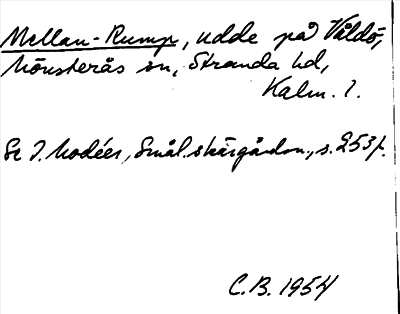 Mellan-Rump, udde på Våldö,
Mönsterås sn, Stranda hd,
Kalm. l.
Se I. Modéer, Smål. skärgården, s. 253f.
C.B. 1954